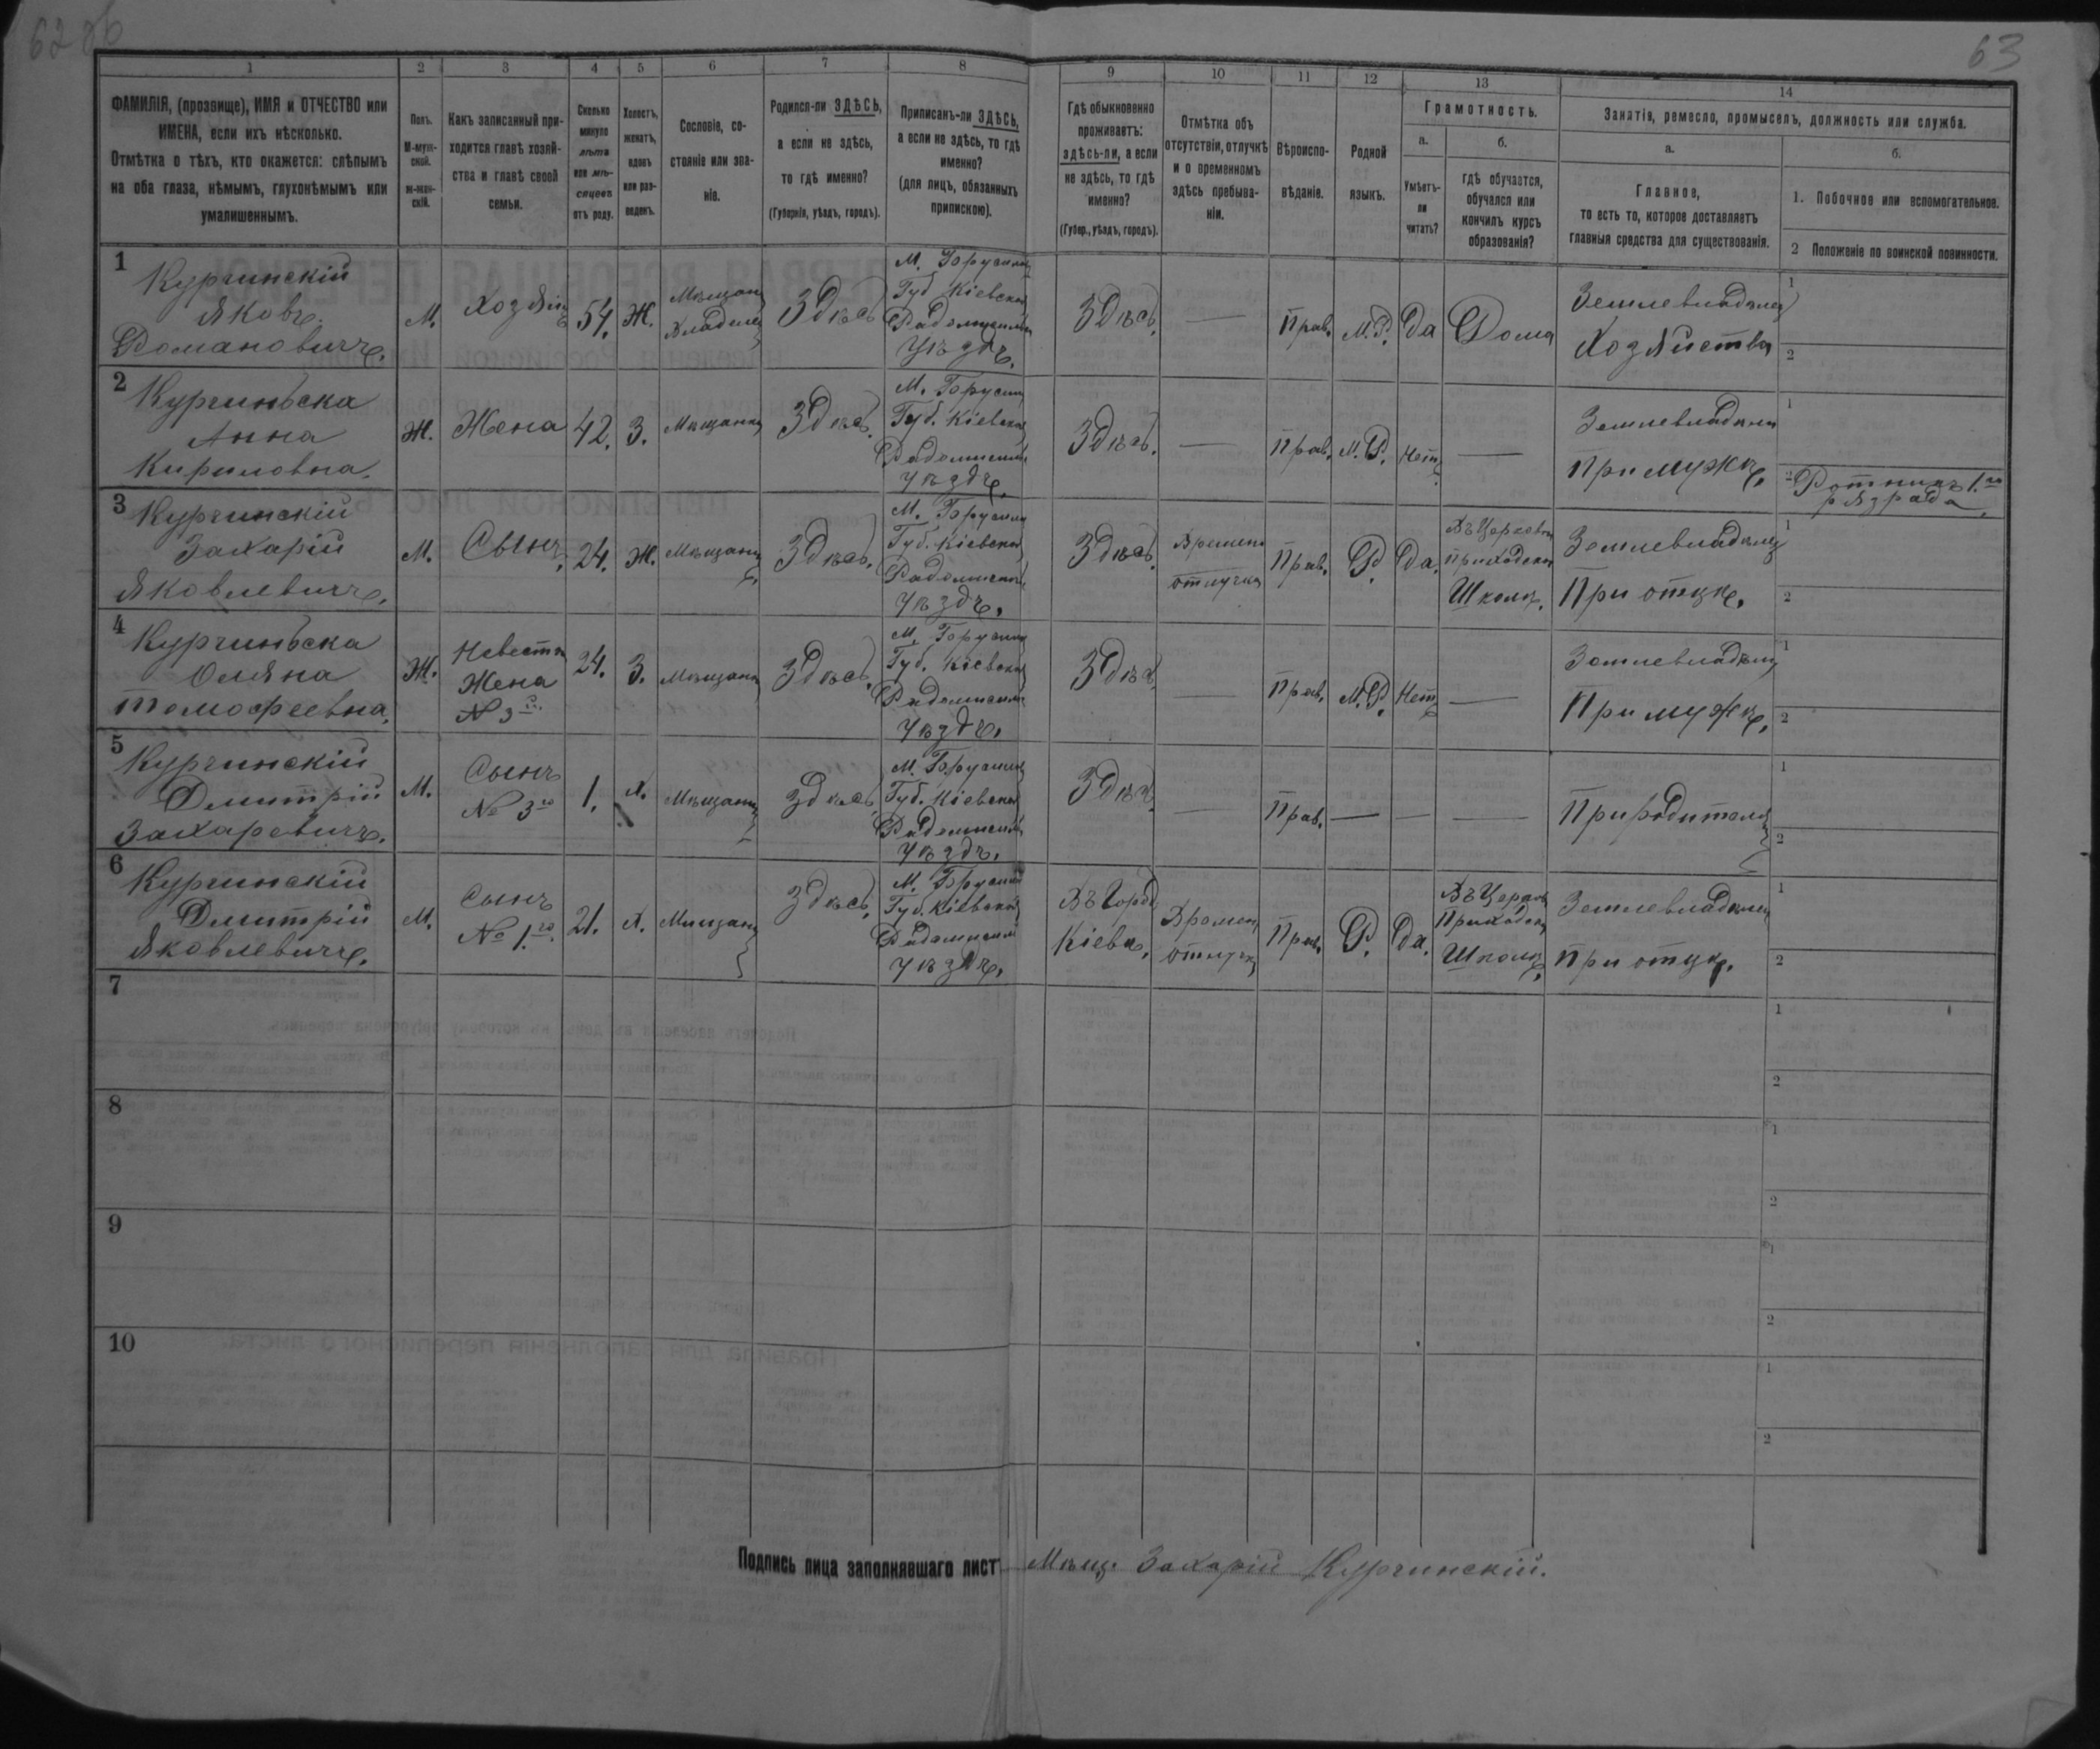 62 об
63
1 2 3 4 5 6 7 8 9 10 11 12 13 14
ФАМИЛІЯ, (прозвище), ИМЯ и ОТЧЕСТВО или
ИМЕНА, если ихъ нѣсколько.
Отмѣтка о тѣхъ, кто окажется: слѣпымъ
на оба глаза, нѣмымъ, глухонѣмымъ или
умалишеннымъ.
Полъ.
М-муж-
ской.
ж-жен-
скій.
Какъ записанный при-
ходится главѣ хозяй-
ства и главѣ своей
семьи.
Сколько
минуло
лѣтъ
или мѣ-
сяцевъ
отъ роду.
Холостъ,
женатъ,
вдовъ
или раз-
веденъ.
Сословіе, со-
стояніе или зва-
ніе.
Родился-ли ЗДѢСЬ,
а если не здѣсь,
то гдѣ именно?
(Губернія, уѣздъ, городъ).
Приписанъ-ли ЗДѢСЬ,
а если не здѣсь, то гдѣ
именно?
(для лицъ, обязанныхъ
припискою).
Гдѣ обыкновенно
проживаетъ:
здѣсь-ли, а если
не здѣсь, то гдѣ
именно?
(Губер., уѣздъ, городъ).
Отмѣтка объ
отсутствіи, отлучкѣ
и о временномъ
здѣсь пребыва-
ніи.
Вѣроиспо-
вѣданіе.
Родной
языкъ.
Грамотность.
а.
Умѣетъ-
ли
читать?
б.
гдѣ обучается,
обучался или
кончилъ курсъ
образованія?
Занятія, ремесло, промыселъ, должность или служба.
а.
Главное,
то есть то, которое доставляетъ
главныя средства для существованія.
б.
1. Побочное или вспомогательное.
2 Положеніе по воинской повинности.
1
Курчинскій
Яковъ
Романовичъ.
М.
Хозяин
54.
Ж.
Мѣщан
Владѣлец
Здѣсь
М.
Губ Кіевской
Радомысльск
Уѣздъ.
Здѣсь.
—
Прав.
М.Р.
Да
Дома
Землевладѣлец
Хозяйства
1
2
2
Курчинъска
Анна
Кириловна.
Ж.
Жена
42.
З.
Мѣщанка
Здѣсь.
М.
Губ. Кіевской
уѣздъ.
Здѣсь.
—
Прав.
М.Р.
Нет
—
При мужѣ.
1
2 Ратникъ 1.го
разрада.
3
Курчинскій
Захарій
Яковлевичъ.
М.
Сынъ,
24.
Ж.
Мѣщанин
Здѣсь.
М.
Губ. Кіевской
уѣздъ.
Здѣсь.
Времен
отлучка
Прав.
Р.
Да.
Въ Церковн
приходской
Школѣ.
Землевладѣлец
При отцѣ.
1
2
4
Курчинъска
Оляна
Томофеевна.
Ж.
Невестка
Жена
№ 3го.
24.
З.
Мѣщанка
Здѣсь.
М.
Губ. Кіевской
уѣздъ.
Здѣсь
—
Прав.
М.Р.
Нет
—
При мужѣ.
1
2
5
Курчинскій
Дмитрій
Захаревичъ.
М.
Сынъ
№ 3го
1.
х.
Мѣщанин
Здѣсь
М.
Губ. Кіевской
уѣздъ.
Здѣсь
—
Прав.
—
—
—
При родителях
1
2
6
Курчинскій
Дмитрій
Яковлевичъ.
М.
Сынъ
№ 1.го.
21.
х.
Мищанин
Здѣсь.
М.
Губ. Кіевской
уѣздъ.
Въ Городѣ
Кіевѣ.
Времен
отлучка
Прав.
Р.
Да.
Въ Церков
Приходской
Школѣ.
Землевладѣлец
При отцѣ.
1
2
7
1
2
8
1
2
9
1
2
10
1
2
Подпись лица заполнявшаго лист Мѣщ. Захарій Курчинскій.